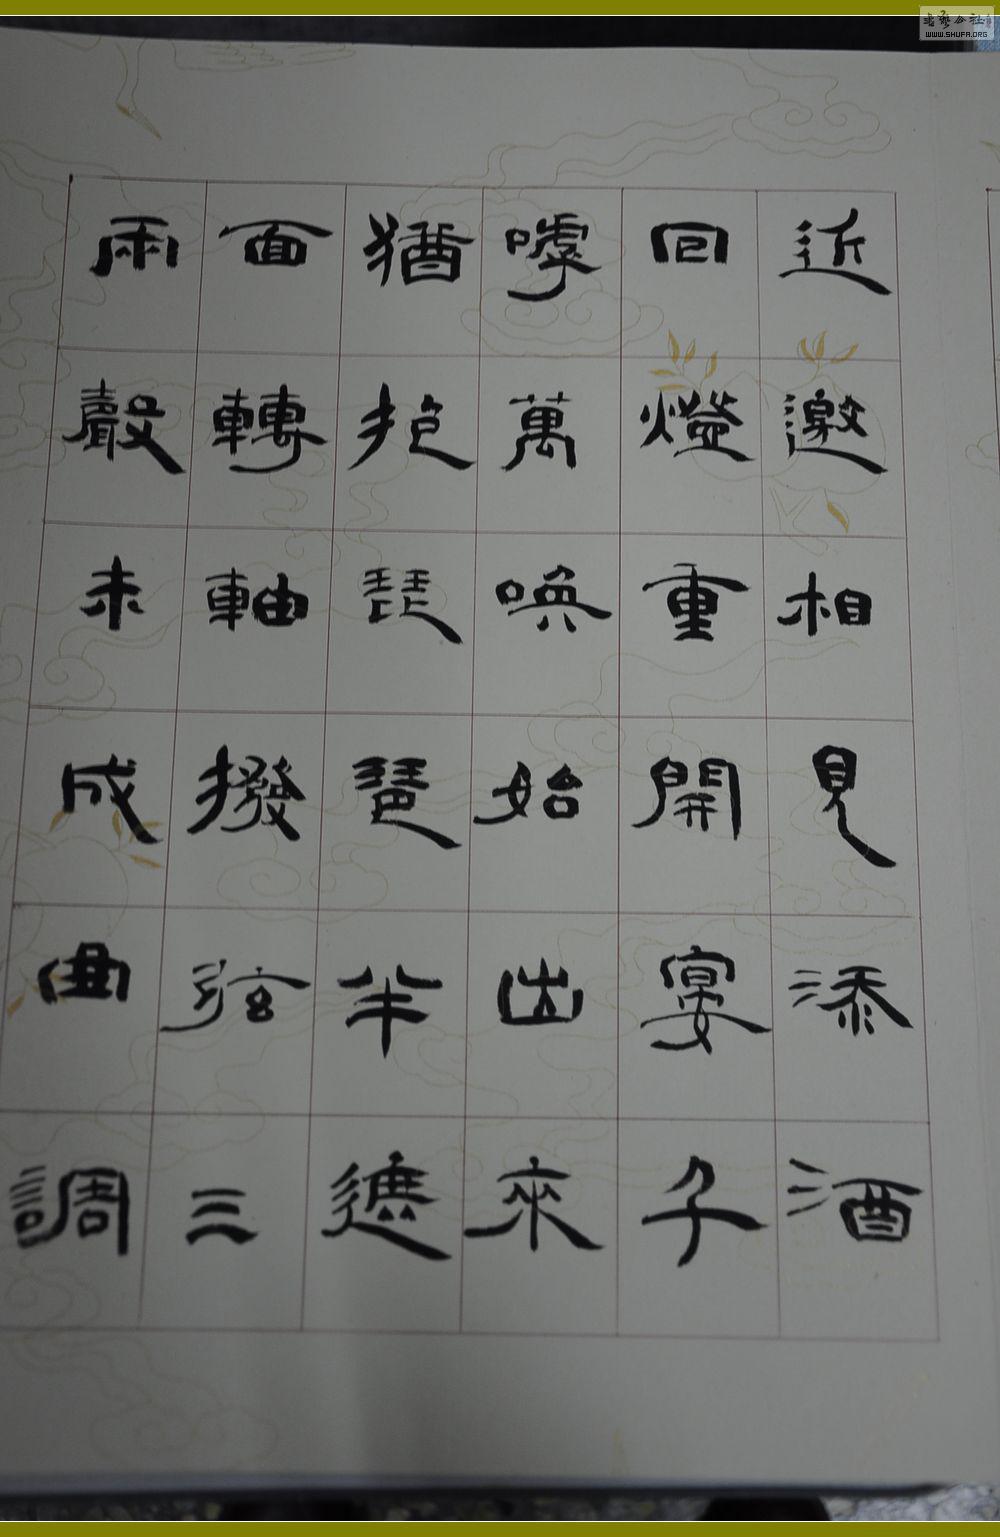 近邀相見添酒
回燈重開宴千
嘑萬喚始出來
猶抱琵琶半遮
面轉軸撥弦三
兩聲未成曲調
书艺公社
WWW.SHUFA.ORG